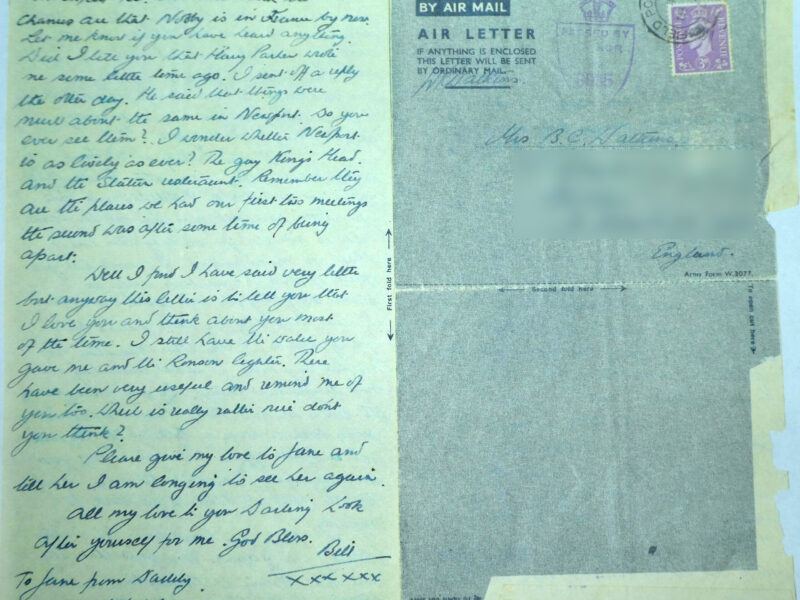 Chances are that Nobby is in France by now.
Let me know if you have heard anything.
Did I tell you that Harry Parker wrote
me some little time ago. I sent off a reply
the other day. He said that things were
much about the same in Newport. Do you
ever see them? I wonder whether Newport
is as lively as ever? The gay King's Head.
and the Station restaurant. Remember they
are the places we had our first two meetings
the second was after some time of being
apart.
Well I find I have said very little
but anyway this letter is to tell you that
I love you and think about you most
of the time. I still have the you
gave me and the Ronson lighter. These
have been very useful and remind me of
you too. Which is really rather nice don't
you think?
Please give my love to Jane and
tell her I am longing to see her again.
All my love to you Darling Look
after yourself for me. God Bless.
Bill
xxx xxx
To Jane from Daddy.
BY AIR MAIL
AIR LETTER
IF ANYTHING IS ENCLOSED
THIS LETTER WILL BE SENT
BY ORDINARY MAIL.
PASSED BY
Mrs. B. C. Watkins.
England.
Army Form W.3077.
First fold here
Second fold here
To open cut here